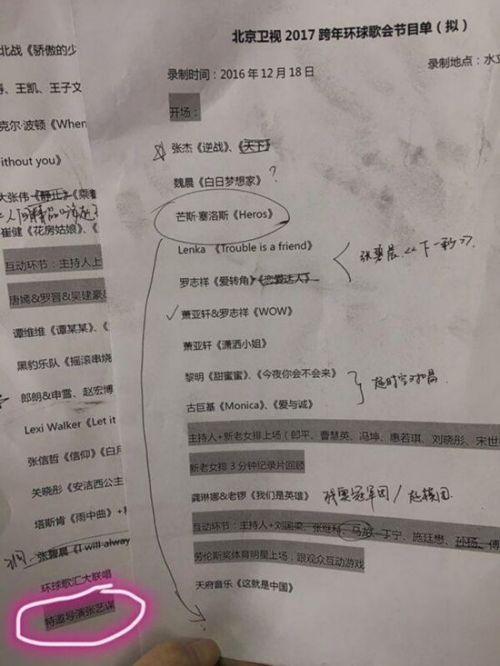 北战《骄傲的少
、王凯、王子文
克尔·波顿《When
ithout you》
大张伟《静止》《乘着
崔健《花房姑娘》、《
互动环节：主持人上
唐嫣&罗晋&吴建豪
谭维维《谭某某》、《
黑豹乐队《摇滚串烧
郎朗&申雪、赵宏博
Lexi Walker《Let it
张信哲《信仰》《白月
关晓彤《安洁西公主
塔斯肯《雨中曲》+
张碧晨《I will alway
环球歌汇大联唱
特邀导演张艺谋
北京卫视 2017 跨年环球歌会节目单（拟）
录制时间：2016 年 12 月 18 日
录制地点：水立
开场：
张杰《逆战》、《天下》
魏晨《白日梦想家》?
芒斯·塞洛斯《Heros》
Lenka 《Trouble is a friend》
张碧晨
罗志祥《爱转角》《恋爱达人》
萧亚轩&罗志祥《WOW》
萧亚轩《潇洒小姐》
黎明《甜蜜蜜》、《今夜你会不会来》
古巨基《Monica》、《爱与诚》
主持人+新老女排上场（郎平、曹慧英、冯坤、惠若琪、刘晓彤、宋世
新老女排 3 分钟纪录片回顾
龚琳娜&老锣《我们是英雄》
互动环节：主持人+刘国梁、张继科、马龙、丁宁、施廷懋、孙杨、傅
劳伦斯奖体育明星上场，跟观众互动游戏
天府音乐《这就是中国》